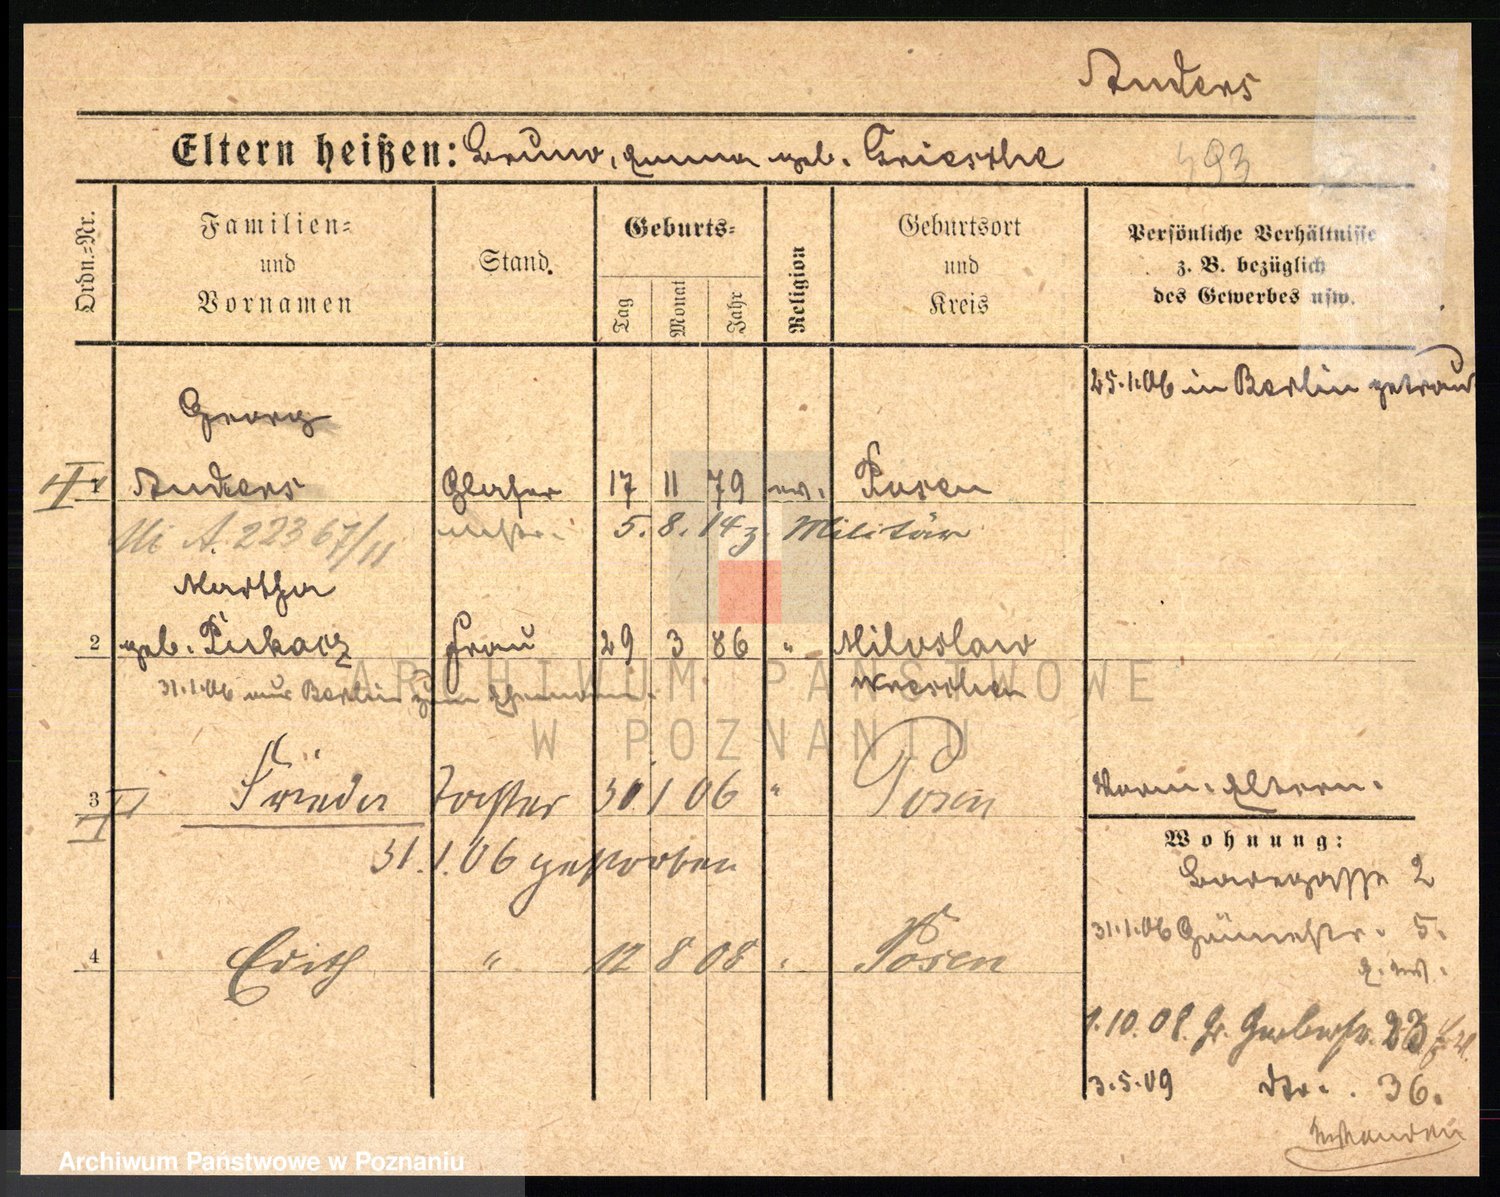 Anders
Eltern heißen: Bruno, Emma geb. Grieske
493
Ordn.-Nr.
Familien- und Vornamen
Stand.
Geburts-
Tag
Monat
Jahr
Religion
Geburtsort und Kreis
Persönliche Verhältnisse
z. B. bezüglich
des Gewerbes usw.
25.1.06 in Berlin getraut
Georg
1 Anders Glaser 17 11 79 ev. Posen
A. 22367/11 5.8.14 z. Militär
Martha
2 geb. Pukacz Frau 29 3 86 " Miloslaw
31.1.06 aus Berlin zum Ehemann. Wreschen
3 Frieda Tochter 30 1 06 " Posen
Vorm. Eltern.
31.1.06 gestorben
Wohnung:
2
31.1.06 5.
4 Edith " 12 8 08 " Posen
1.10.08. Gr. Gerberstr. 23
3.5.09 dto. 36.
ARCHIWUM PAŃSTWOWE
W POZNANIU
Archiwum Państwowe w Poznaniu